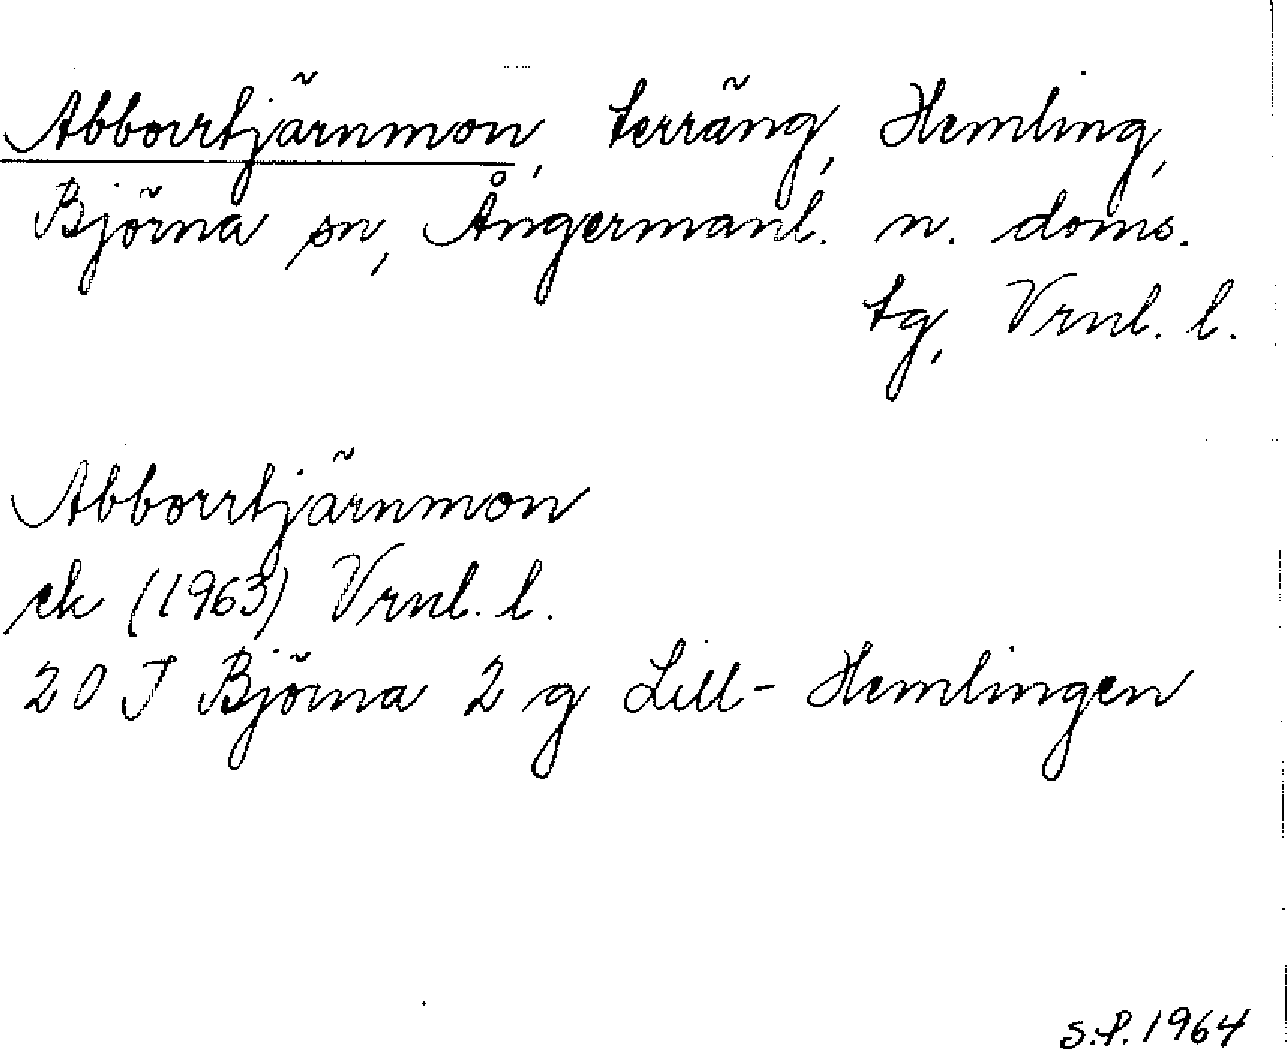 Abborrtjärnmon, terräng, Hemling,
Björna sn, Ångermanl. n. doms.
tg, Vrnl. l.
Abborrtjärnmon
ek (1963) Vrnl. l.
20 J Björna 2 g Lill-Hemlingen
S.P. 1964